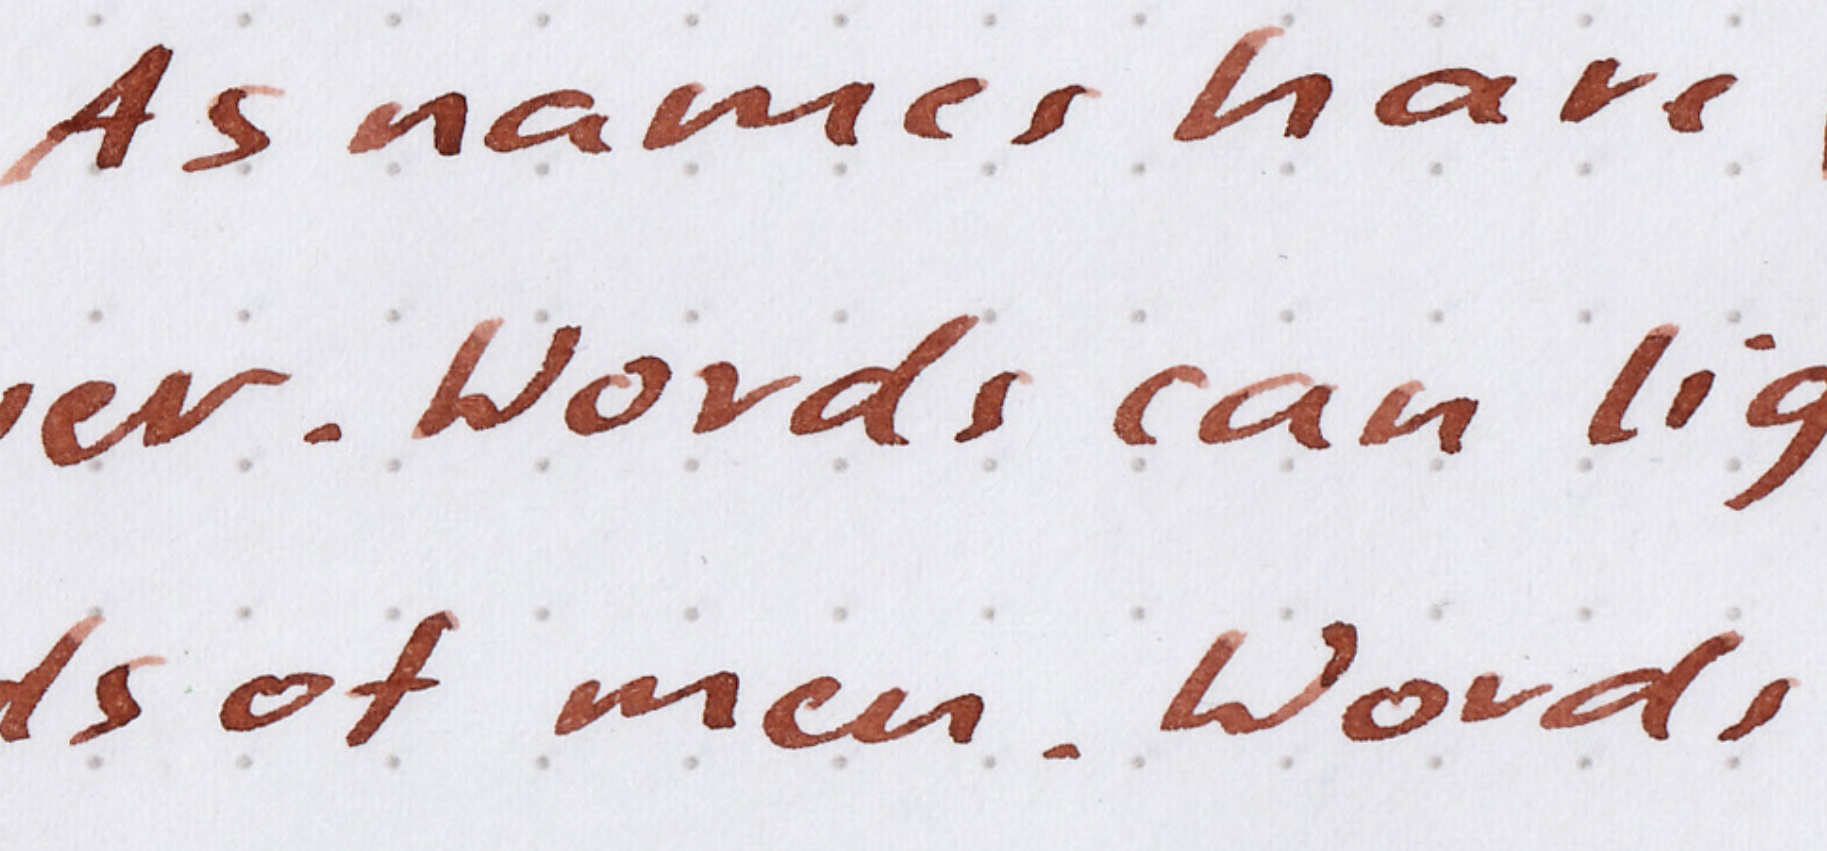 As names have
er. Words can lig
ds of men. Words